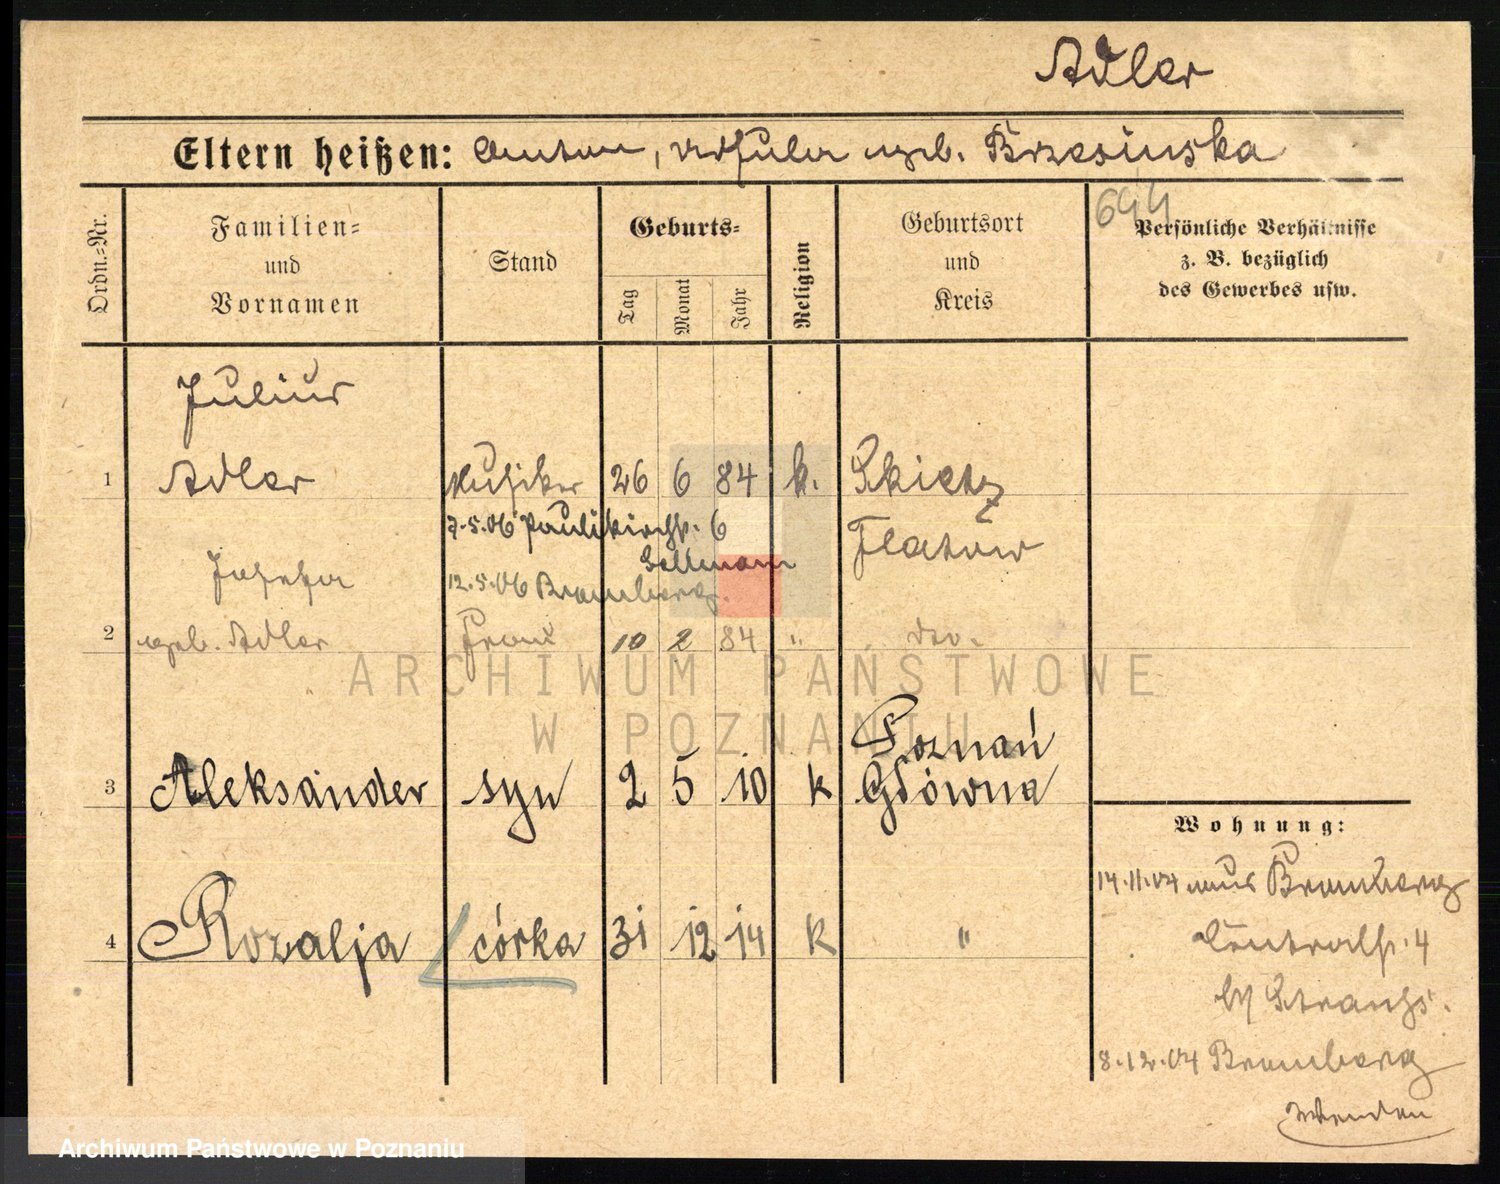 Adler
Eltern heißen: Anton, Ursula geb. Brzesinska
Ordn.-Nr.
Familien-
und
Vornamen
Stand
Geburts-
Tag
Monat
Jahr
Religion
Geburtsort
und
Kreis
644
Persönliche Verhältnisse
z. B. bezüglich
des Gewerbes usw.
Julius
1 Adler Musiker 26 6 84 k. Skietz
7.5.06 Paulikirchst. 6 Flatow
Sellmann
Josefa 12.5.06 Bromberg.
2 geb. Adler Frau 10 2 84 " dto.
Poznań
3 Aleksander syn 2 5 10 k Główna
Wohnung:
14.11.04 aus Bromberg
4 Rozalja córka 31 12 14 k "
Centralst. 4
8.12.04 Bromberg
Wenden
ARCHIWUM PAŃSTWOWE
W POZNANIU
Archiwum Państwowe w Poznaniu